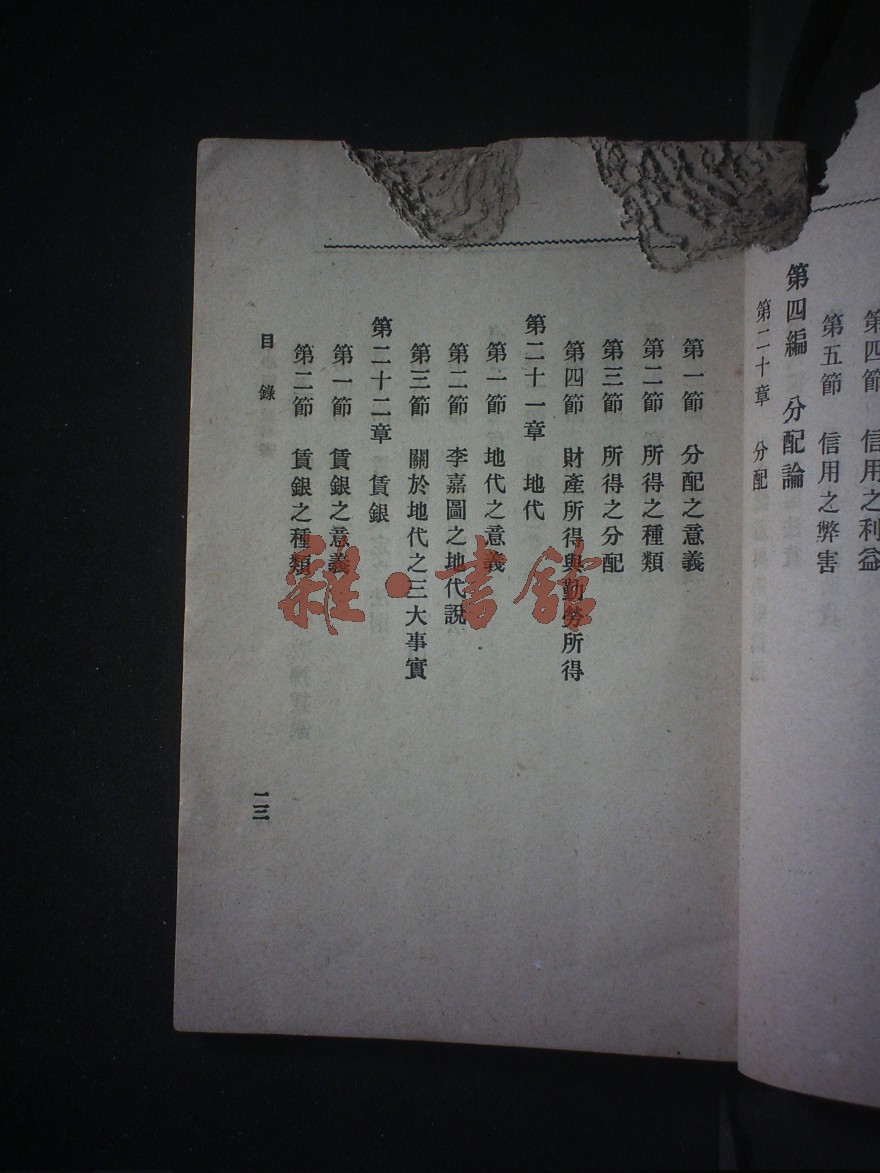 第四節 信用之利益
第五節 信用之弊害
第四編 分配論
第二十章 分配
第一節 分配之意義
第二節 所得之種類
第三節 所得之分配
第四節 財產所得與勤勞所得
第二十一章 地代
第一節 地代之意義
第二節 李嘉圖之地代說
第三節 關於地代之三大事實
第二十二章 賃銀
第一節 賃銀之意義
第二節 賃銀之種類
目錄
一三
雜·書館